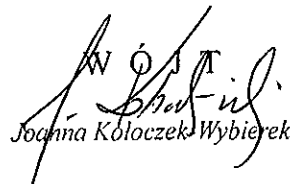 WÓJT
Joanna Kołoczek-Wybierek